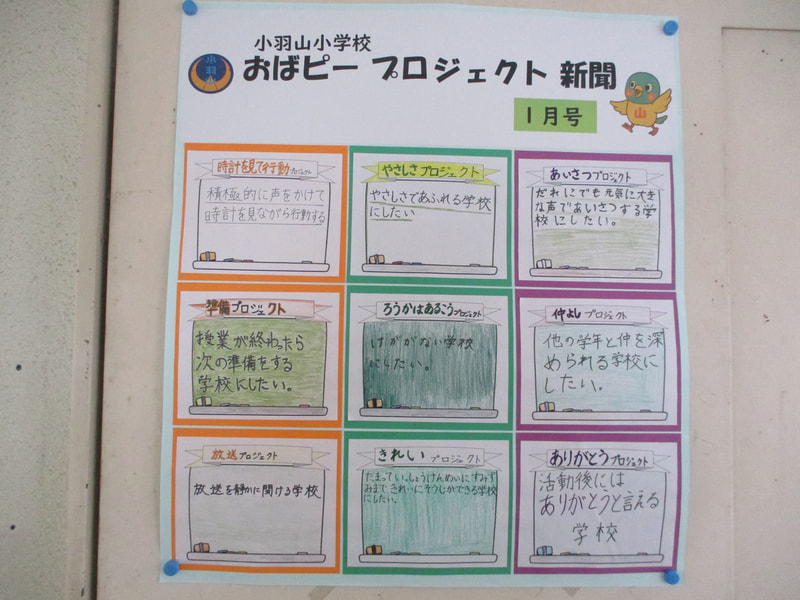 小羽山小学校
おばピー プロジェクト 新聞
小羽山
山
1月号
時計を見て行動プロジェクト
積極的に声をかけて
時計を見ながら行動する
やさしさプロジェクト
やさしさであふれる学校
にしたい
あいさつプロジェクト
だれにでも元気に大き
な声であいさつする学
校にしたい。
準備プロジェクト
授業が終わったら
次の準備をする
学校にしたい。
ろうかはあるこうプロジェクト
けががない学校
にしたい。
仲よしプロジェクト
他の学年と仲を深
められる学校に
したい。
放送プロジェクト
放送を静かに聞ける学校
きれいプロジェクト
だまっていっしょうけんめいにすみず
みまできれいにそうじができる学校
にしたい。
ありがとうプロジェクト
活動後には
ありがとうと言える
学校